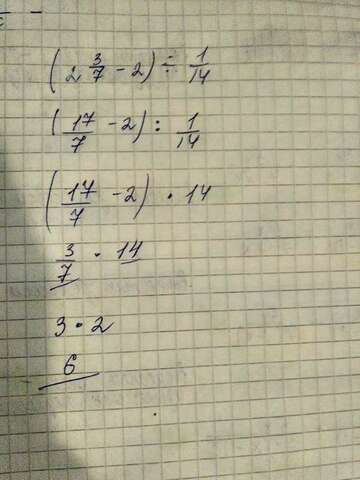 (2 3/7 - 2) ÷ 1/14
(17/7 - 2) : 1/14
(17/7 - 2) · 14
3/7 · 14
3 · 2
6